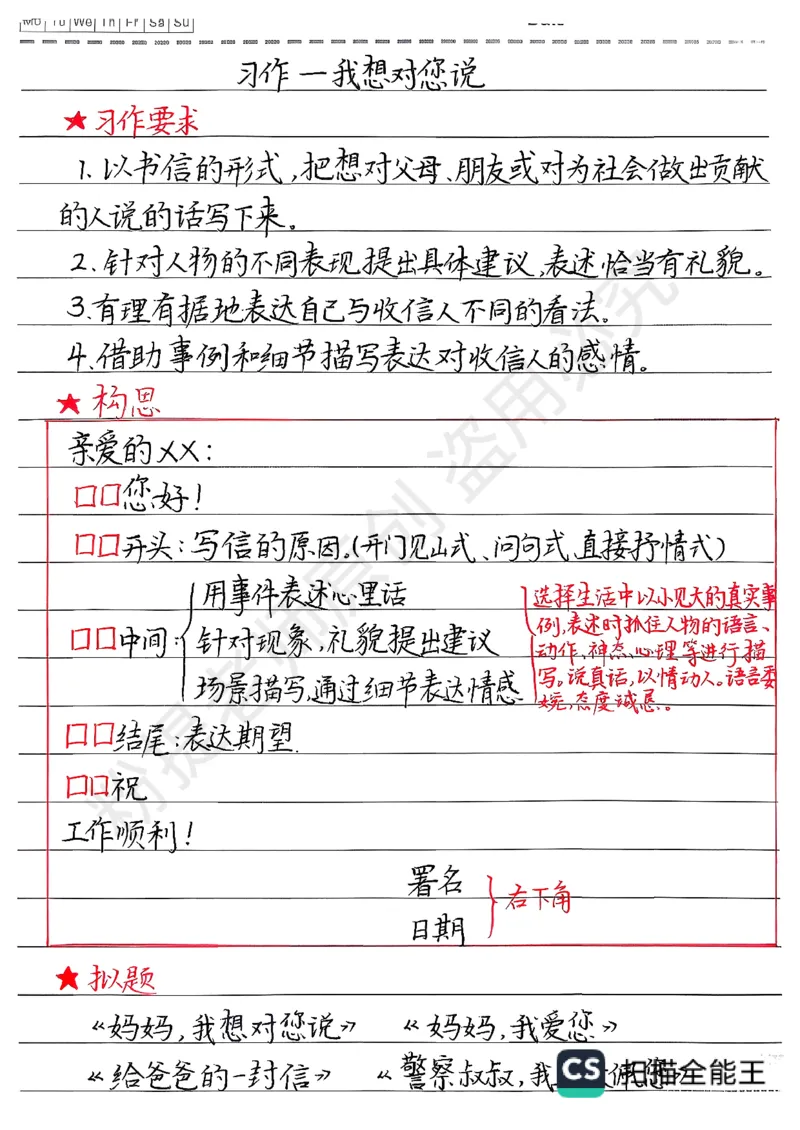 Mo Tu We Th Fr Sa Su
习作一我想对您说
★ 习作要求
1. 以书信的形式,把想对父母、朋友或对为社会做出贡献
的人说的话写下来。
2. 针对人物的不同表现提出具体建议,表述恰当有礼貌。
3. 有理有据地表达自己与收信人不同的看法。
4. 借助事例和细节描写表达对收信人的感情。
★ 构思
亲爱的XX:
□□您好!
□□开头:写信的原因。(开门见山式、问句式、直接抒情式)
□□中间:
用事件表述心里话
针对现象,礼貌提出建议
场景描写,通过细节表达情感
选择生活中以小见大的真实事
例,表述时抓住人物的语言、
动作、神态、心理等进行描
写。说真话,以情动人。语言委
婉,态度诚恳。
□□结尾:表达期望.
□□祝
工作顺利!
署名
日期
右下角
★ 拟题
《妈妈,我想对您说》 《妈妈,我爱您》
《给爸爸的一封信》 《警察叔叔,我
CS 扫描全能王
盗用必究